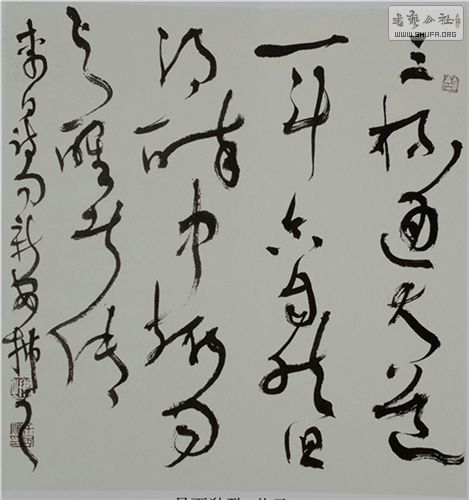 三杯通大道
一斗合自然但
得醉中趣勿
为醒者传
李白诗句新安
书艺公社
WWW.SHUFA.ORG